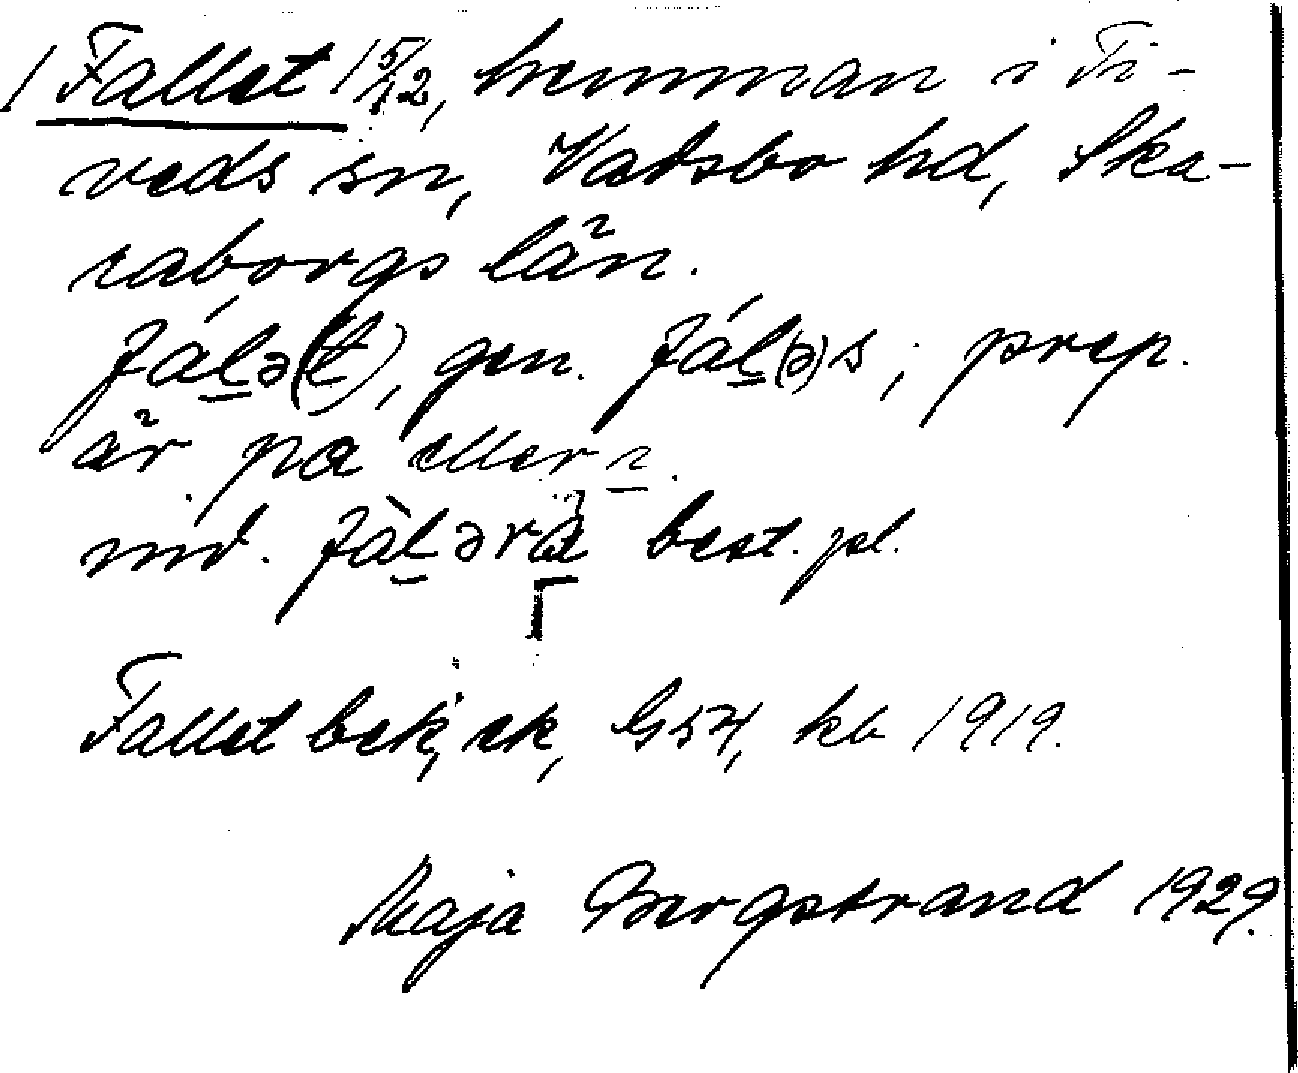 / Fallet 1 5/12, hemman i Ti-
veds sn, Vadsbo hd, Ska-
raborgs län.
fál̲ə(t), gen. fál̲(ə)s; prep.
är på eller ı̲.
nid. fàl̲əra̲ best. pl.
Fallet bek, ek, G 54, kb 1919.
Maja Bergstrand 1929.